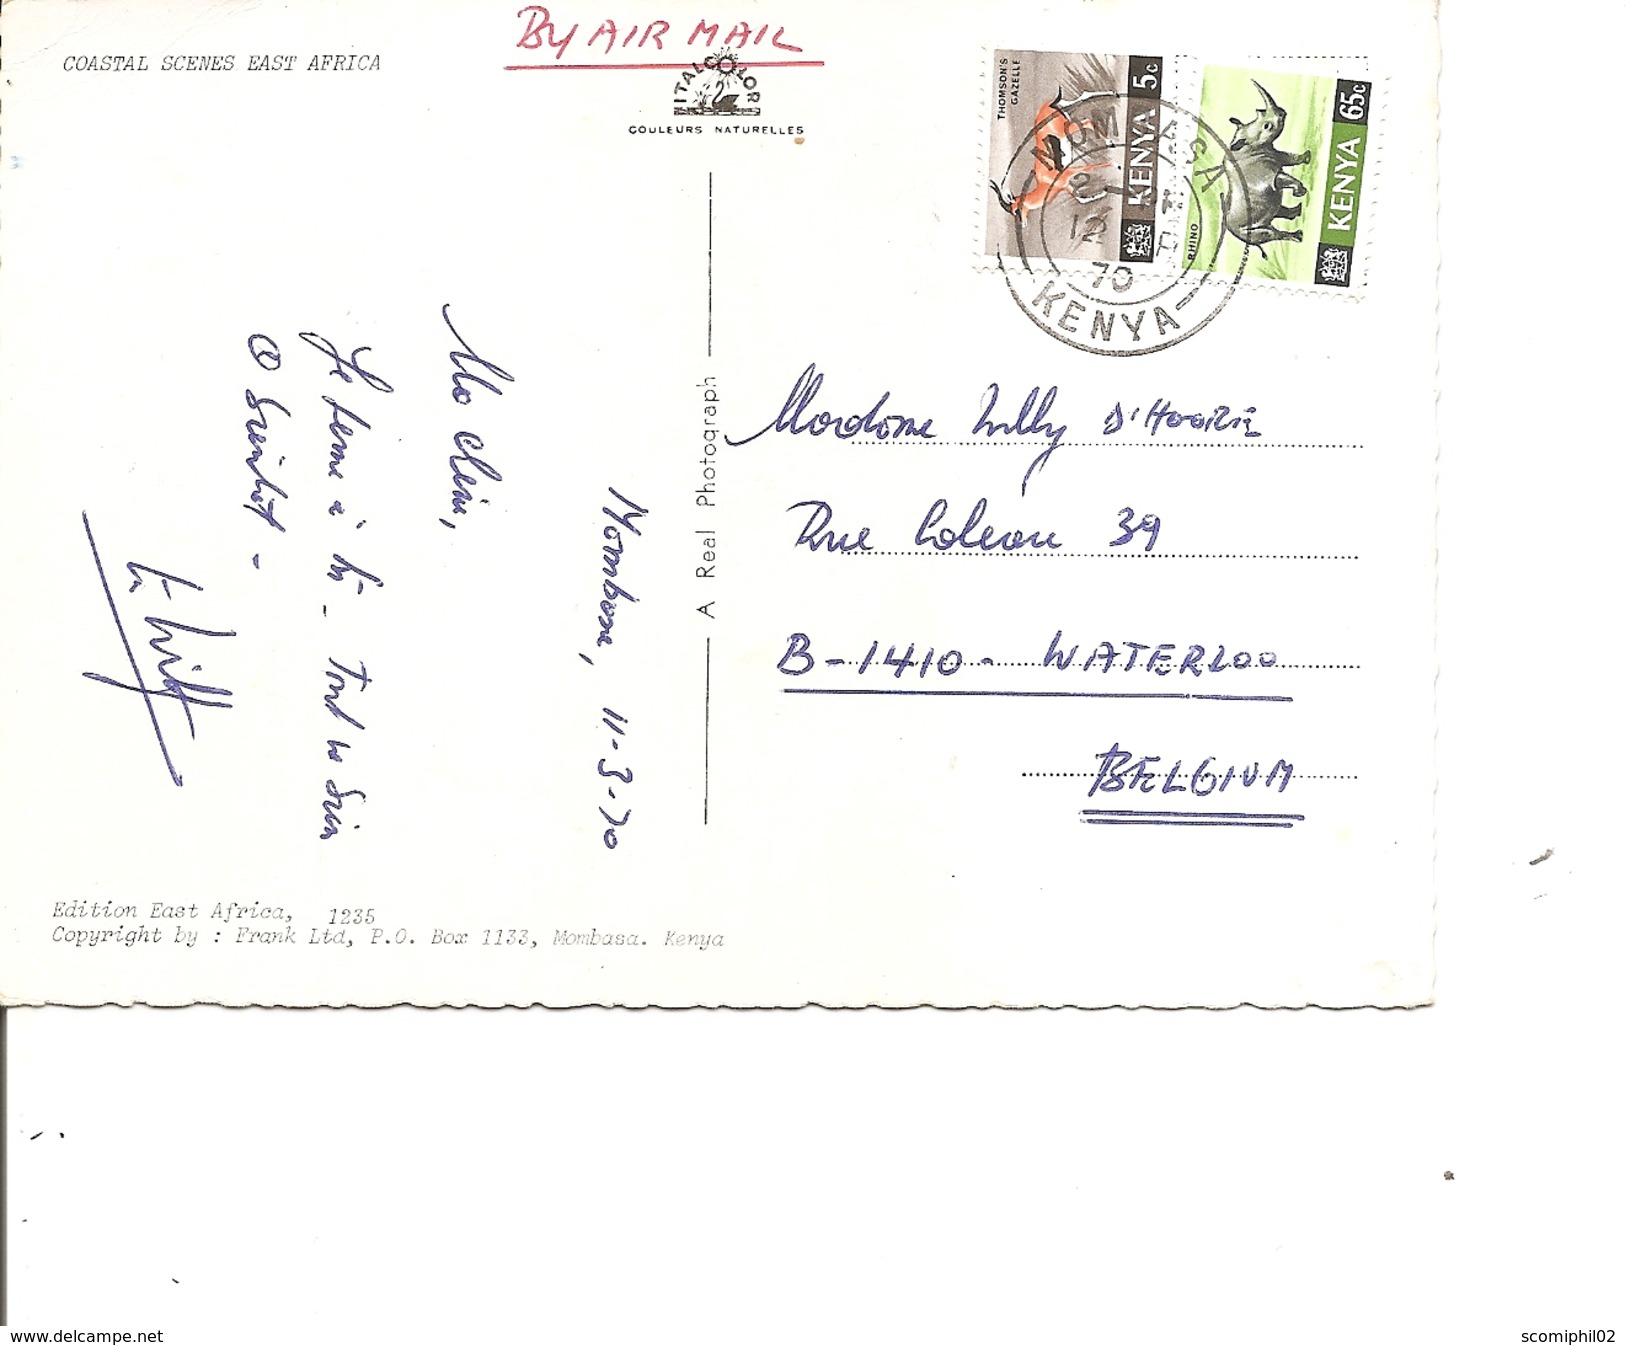 COASTAL SCENES EAST AFRICA
BY AIR MAIL
ITALCOLOR
COULEURS NATURELLES
THOMSON'S
GAZELLE
KENYA 5c
RHINO
KENYA 65c
MOMBASA
12
70
KENYA
A Real Photograph
Mombasa, 11-3-70
Ma
Je à
-
Madame Willy
Rue Coleau 39
B-1410- WATERLOO
BELGIUM
Edition East Africa, 1235
Copyright by : Frank Ltd, P.O. Box 1133, Mombasa. Kenya
www.delcampe.net
scomiphil02